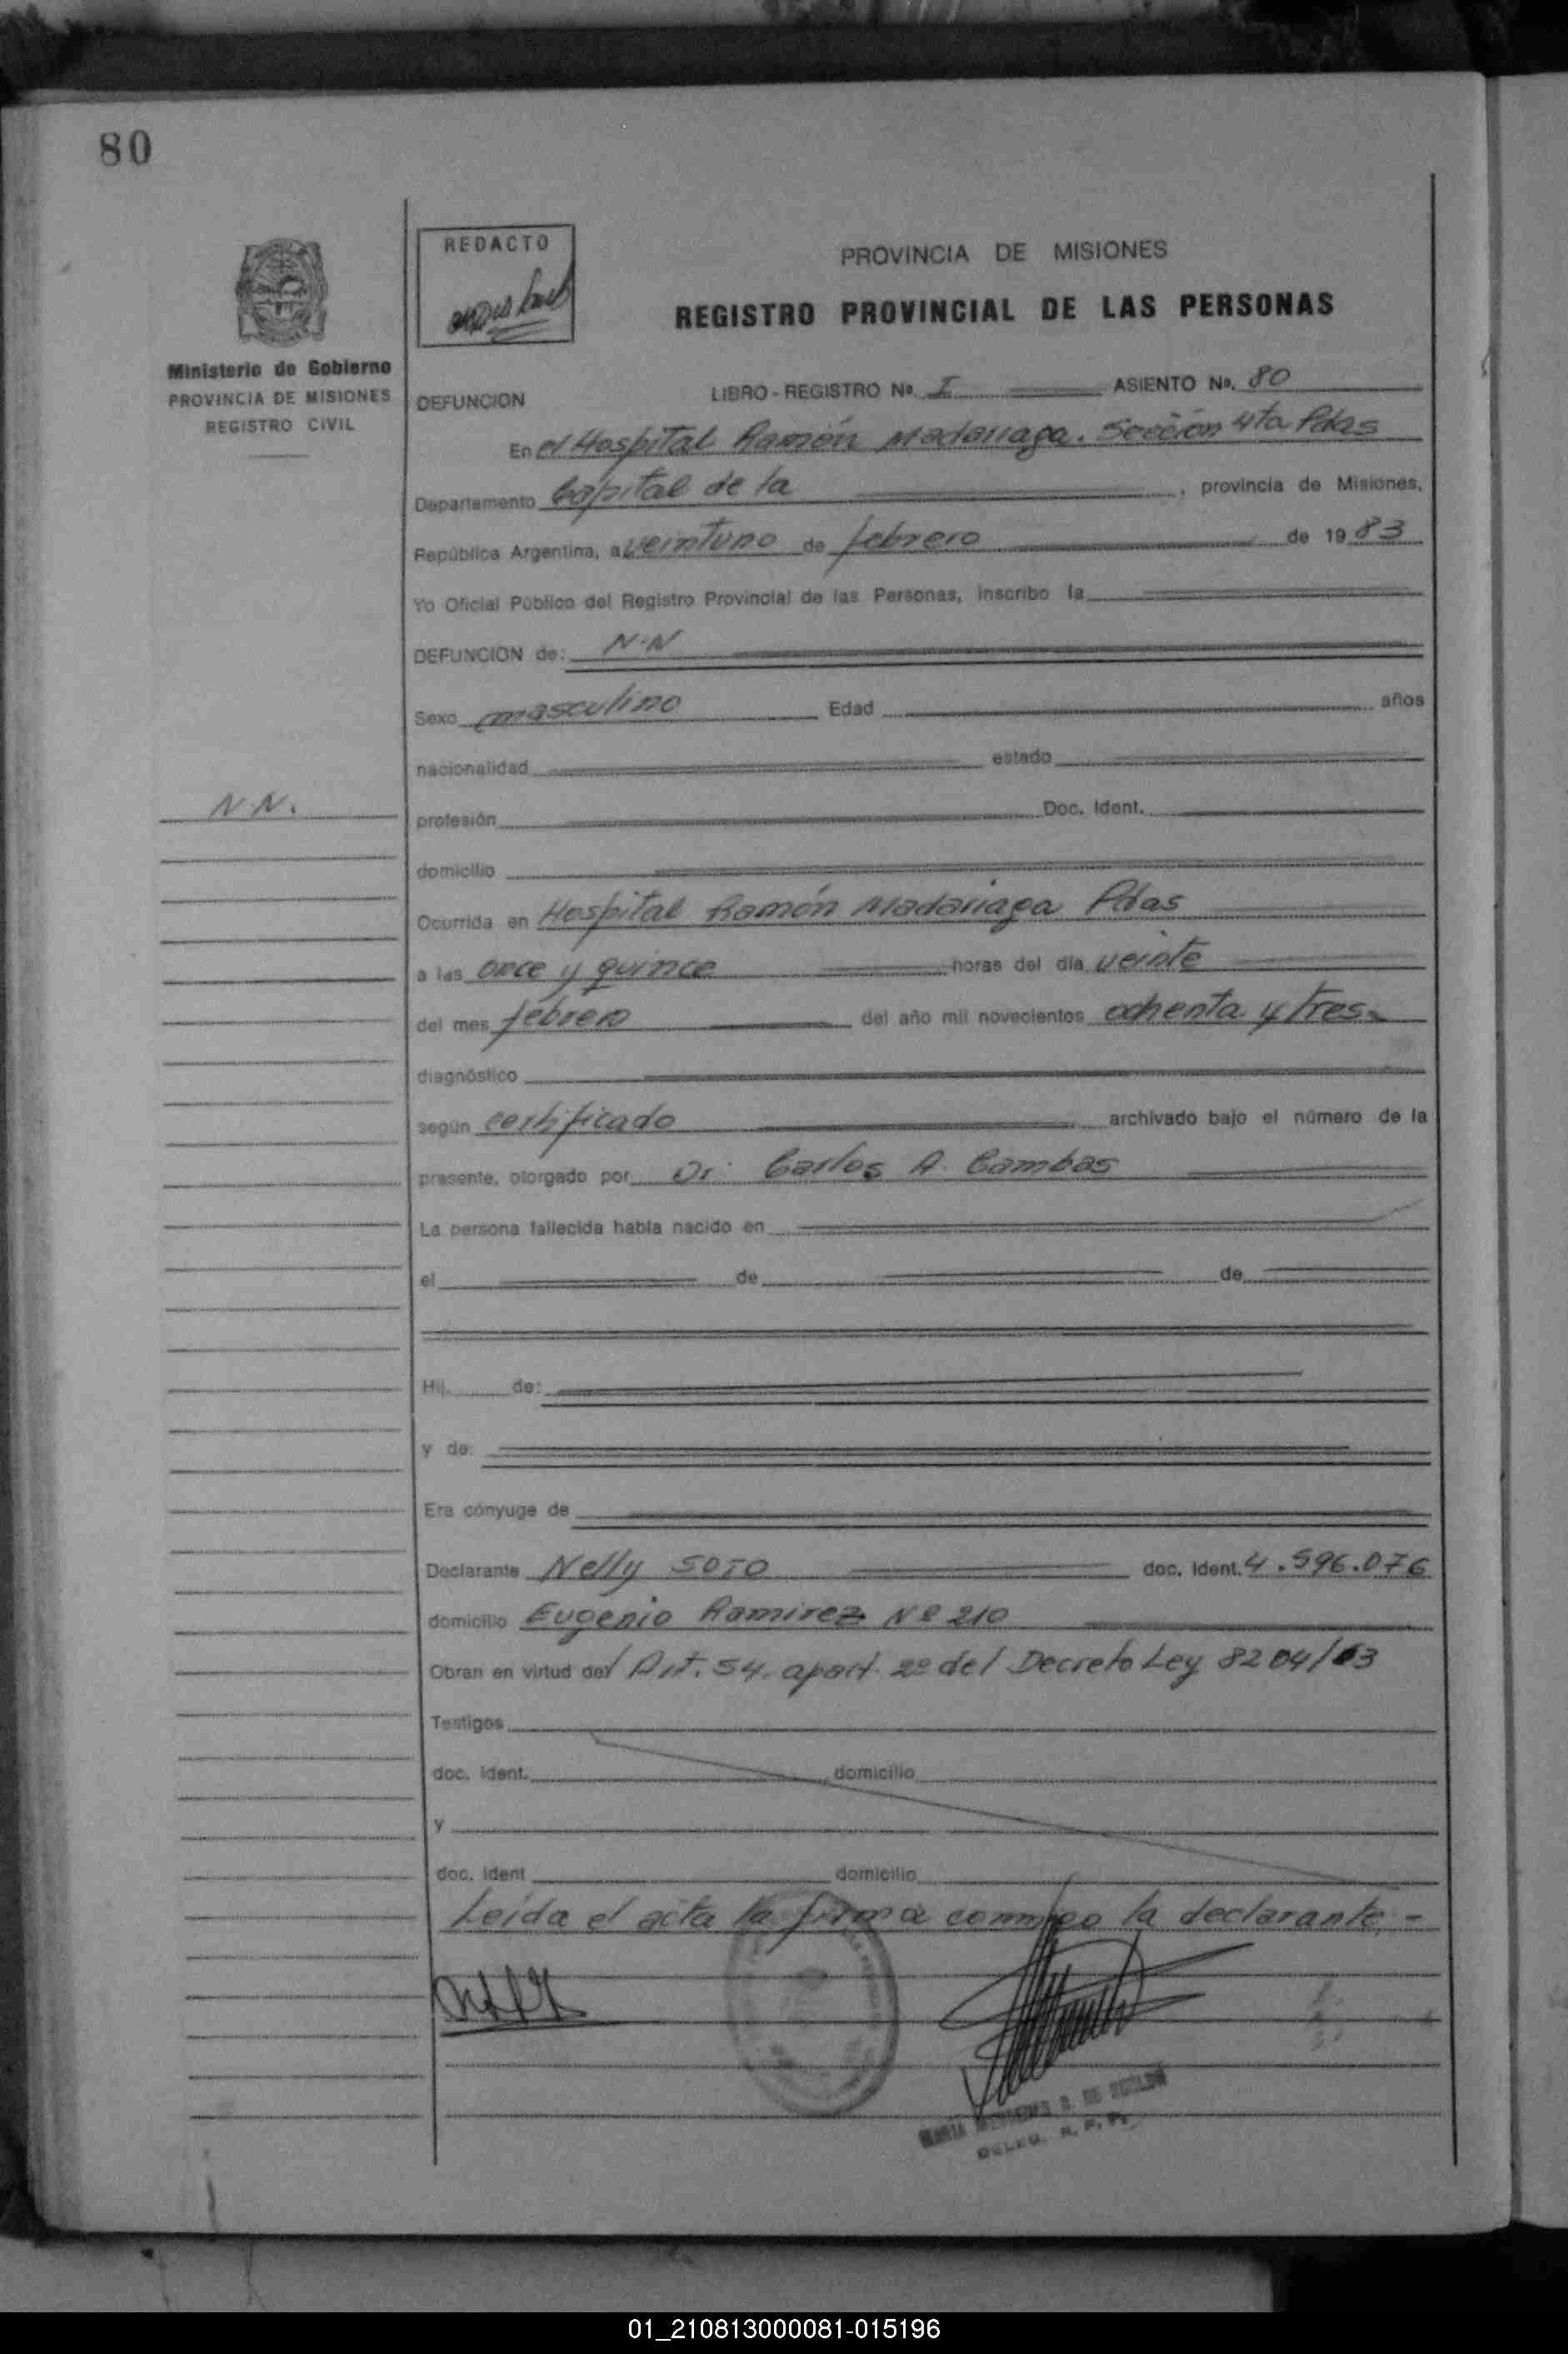 80
REDACTO
PROVINCIA DE MISIONES
REGISTRO PROVINCIAL DE LAS PERSONAS
Ministerio de Gobierno
PROVINCIA DE MISIONES
REGISTRO CIVIL
DEFUNCION LIBRO - REGISTRO No. I ASIENTO No. 80
En el Hospital Ramón Madariaga. Sección 4ta Pdas
Departamento Capital de la , provincia de Misiones,
República Argentina, a veintuno de febrero de 1983
Yo Oficial Público del Registro Provincial de las Personas, inscribo la
DEFUNCION de: N.N
Sexo masculino Edad años
nacionalidad estado
N N.
profesión Doc. Ident.
domicilio
Ocurrida en Hospital Ramón Madariaga Pdas
a las once y quince horas del día veinte
del mes febrero del año mil novecientos ochenta y tres.
diagnóstico
según certificado archivado bajo el número de la
presente, otorgado por Dr. Carlos A. Cambas
La persona fallecida había nacido en
el de de
Hij. de:
y de:
Era cónyuge de
Declarante Nelly SOTO doc. Ident. 4.596.076
domicilio Eugenio Ramirez Nº 210
Obran en virtud del Art. 54, apart. 2º del Decreto Ley 8204/63
Testigos
doc. Ident. domicilio
y
doc. Ident domicilio
Leída el acta la firma conmigo la declarante.-
MARIA
DELEG. R. P. P.
01_210813000081-015196